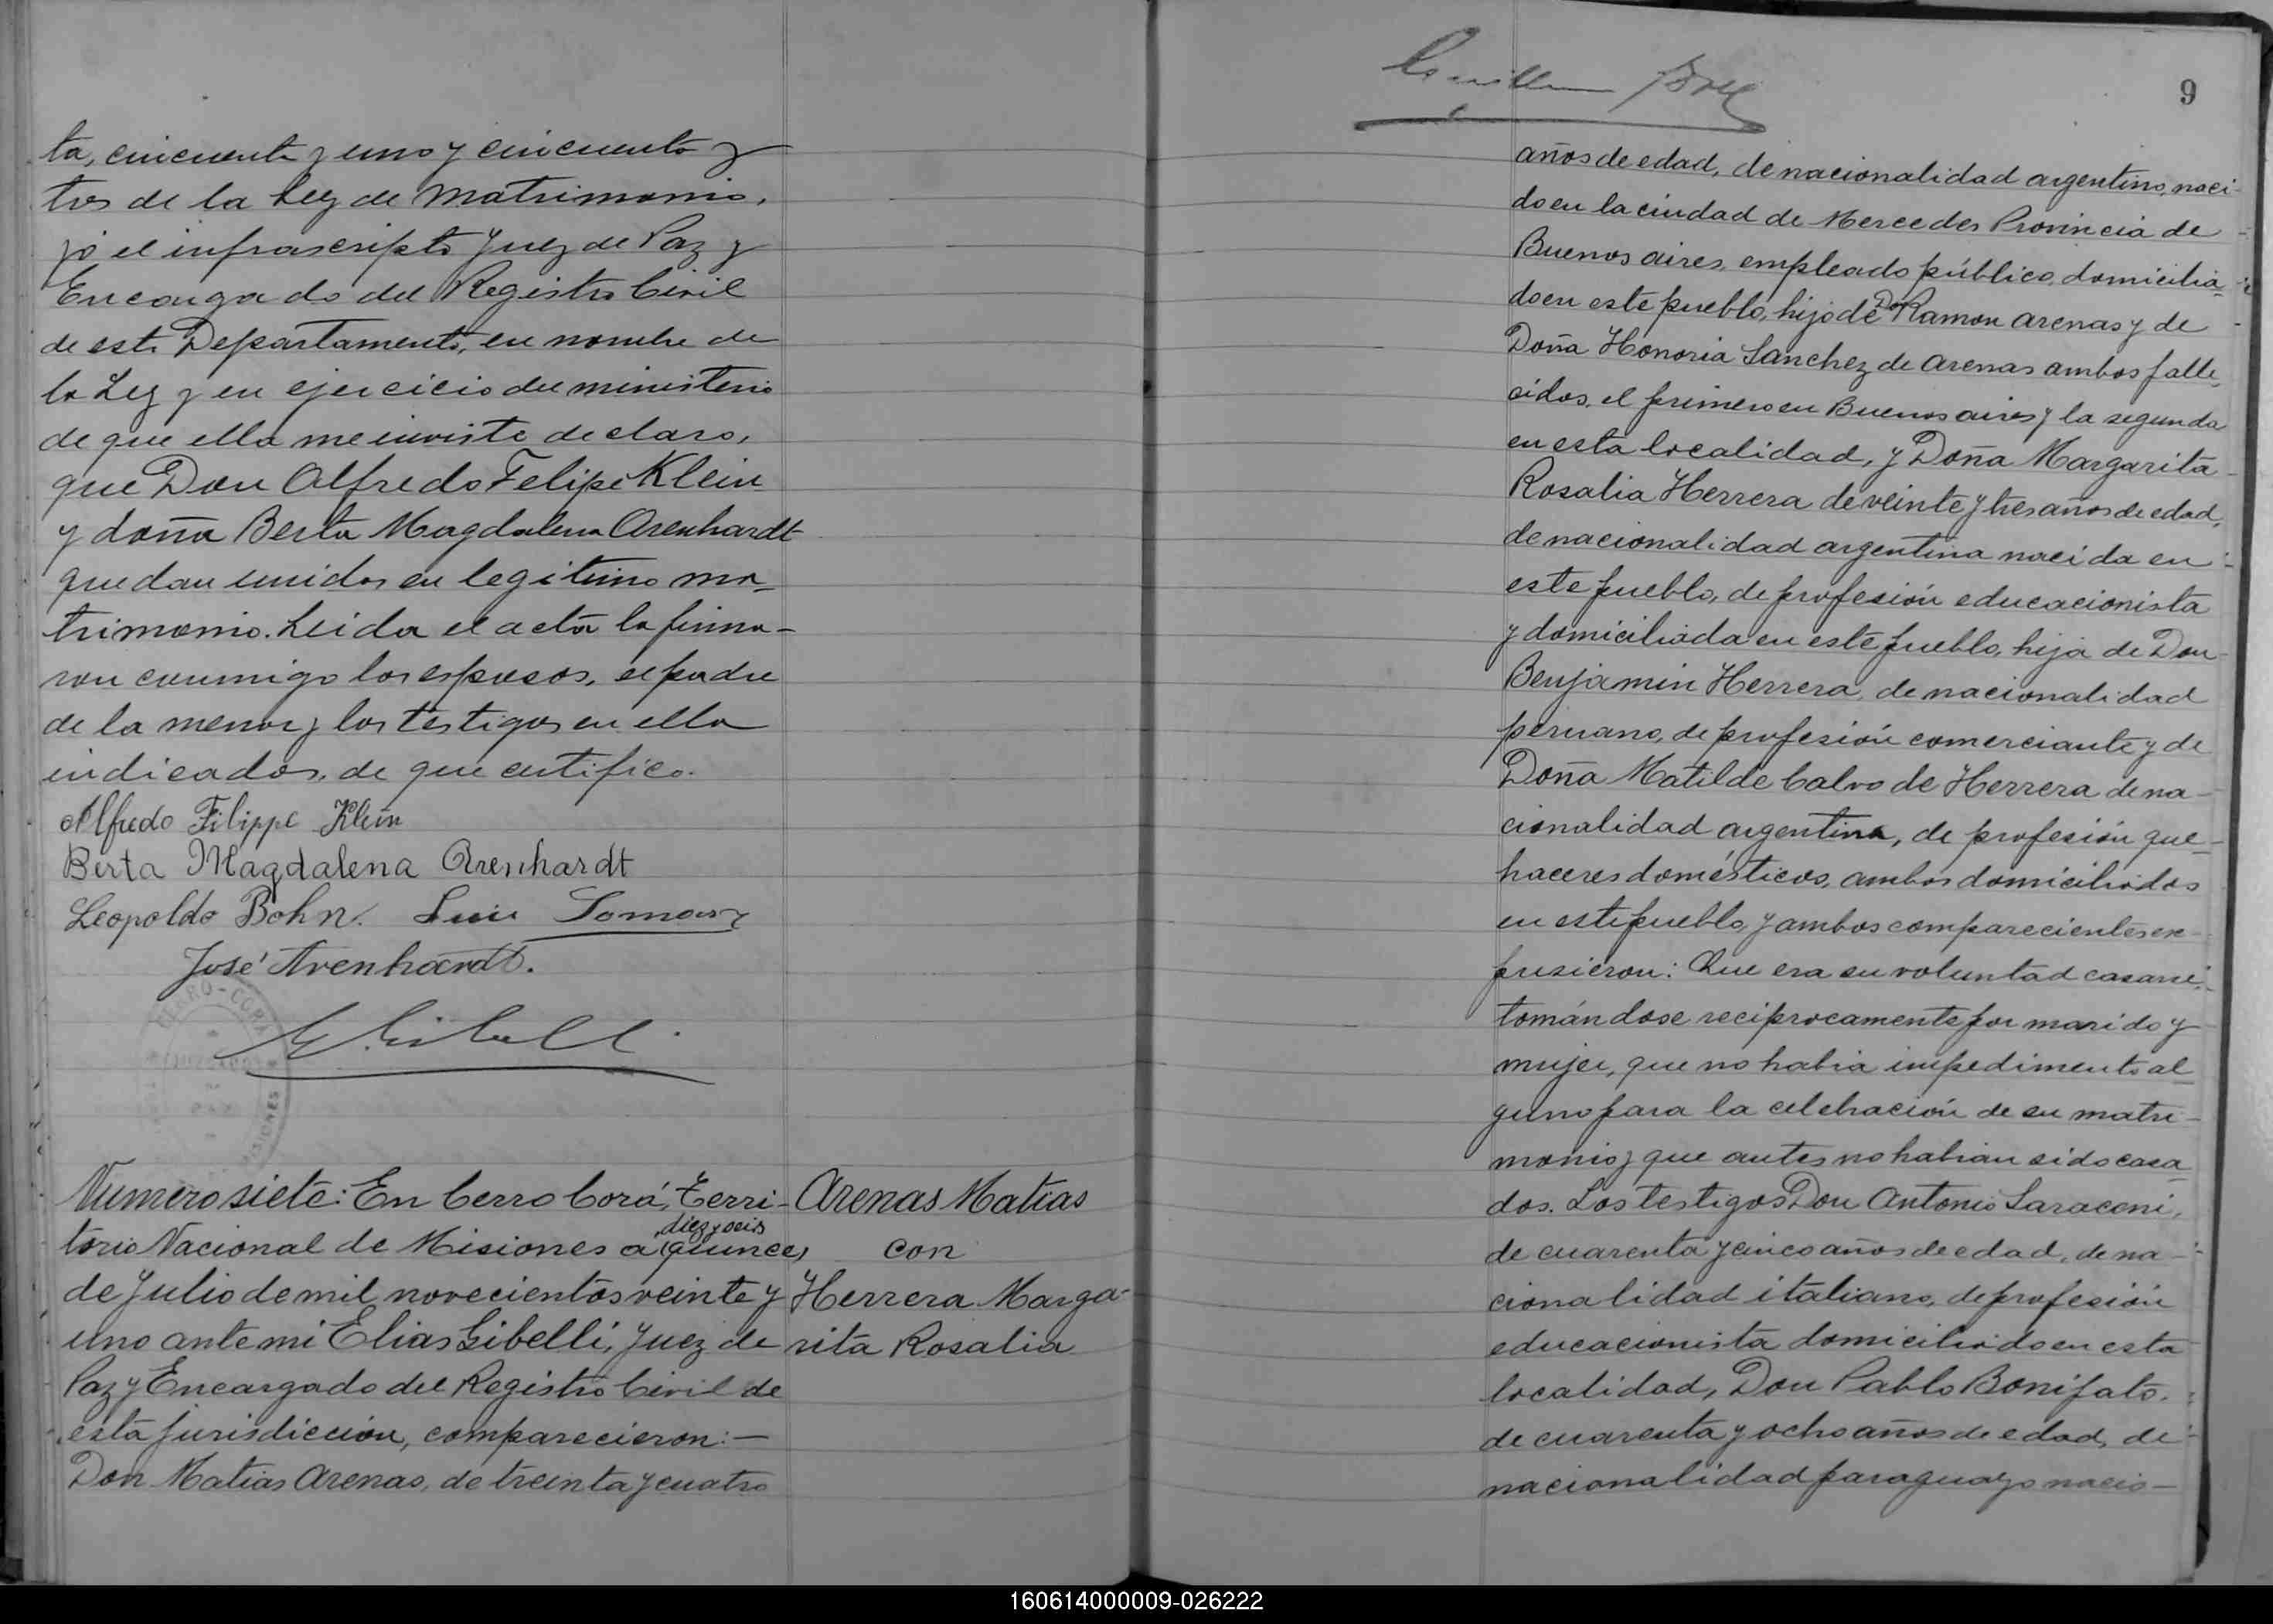 ta, cincuenta y uno y cincuenta y
tres de la Ley de Matrimonio,
yo el infrascripto Juez de Paz y
Encargado del Registro Civil
de este Departamento, en nombre de
la Ley y en ejercicio del ministerio
de que ella me inviste declaro,
que Don Alfredo Felipe Klein
y doña Berta Magdalena Arenhardt
quedan unidos en legitimo ma-
trimonio. Leida el acta la firma-
ron conmigo los esposos, el padre
de la menor y los testigos en ella
indicados, de que certifico.
Alfredo Filippe Klein
Berta Magdalena Arenhardt
Leopoldo Bohn. Luis
José Arenhardt.
CERRO-CORA
MISIONES
Numero siete: En Cerro Corá, Terri-
diez y seis
torio Nacional de Misiones a (quince)
de Julio de mil novecientos veinte y
uno ante mi Elias Libelli, Juez de
Paz y Encargado del Registro Civil de
esta jurisdiccion, comparecieron:—
Don Matias Arenas, de treinta y cuatro
Arenas Matias
con
Herrera Marga-
rita Rosalia
9
años de edad, de nacionalidad argentino, naci-
do en la ciudad de Mercedes Provincia de
Buenos aires, empleado público, domicilia-
do en este pueblo, hijo de Don Ramon Arenas y de
Doña Honoria Sanchez de Arenas ambos falle-
cidos, el primero en Buenos aires y la segunda
en esta localidad, y Doña Margarita
Rosalia Herrera de veinte y tres años de edad,
de nacionalidad argentina nacida en
este pueblo, de profesión educacionista
y domiciliada en este pueblo, hija de Don
Benjamin Herrera, de nacionalidad
peruano, de profesión comerciante y de
Doña Matilde Calvo de Herrera de na-
cionalidad argentina, de profesión que-
haceres domésticos, ambos domiciliados
en este pueblo, y ambos comparecientes ex-
pusieron: Que era su voluntad casarse,
tomándose reciprocamente por marido y
mujer, que no habia impedimento al-
guno para la celebración de su matri-
monio y que antes no habian sido casa-
dos. Los testigos Don Antonio Saraceni,
de cuarenta y cinco años de edad, de na-
cionalidad italiano, de profesión
educacionista domiciliado en esta
localidad, Don Pablo Bonifato,
de cuarenta y ocho años de edad, de
nacionalidad paraguayo nacio-
160614000009-026222